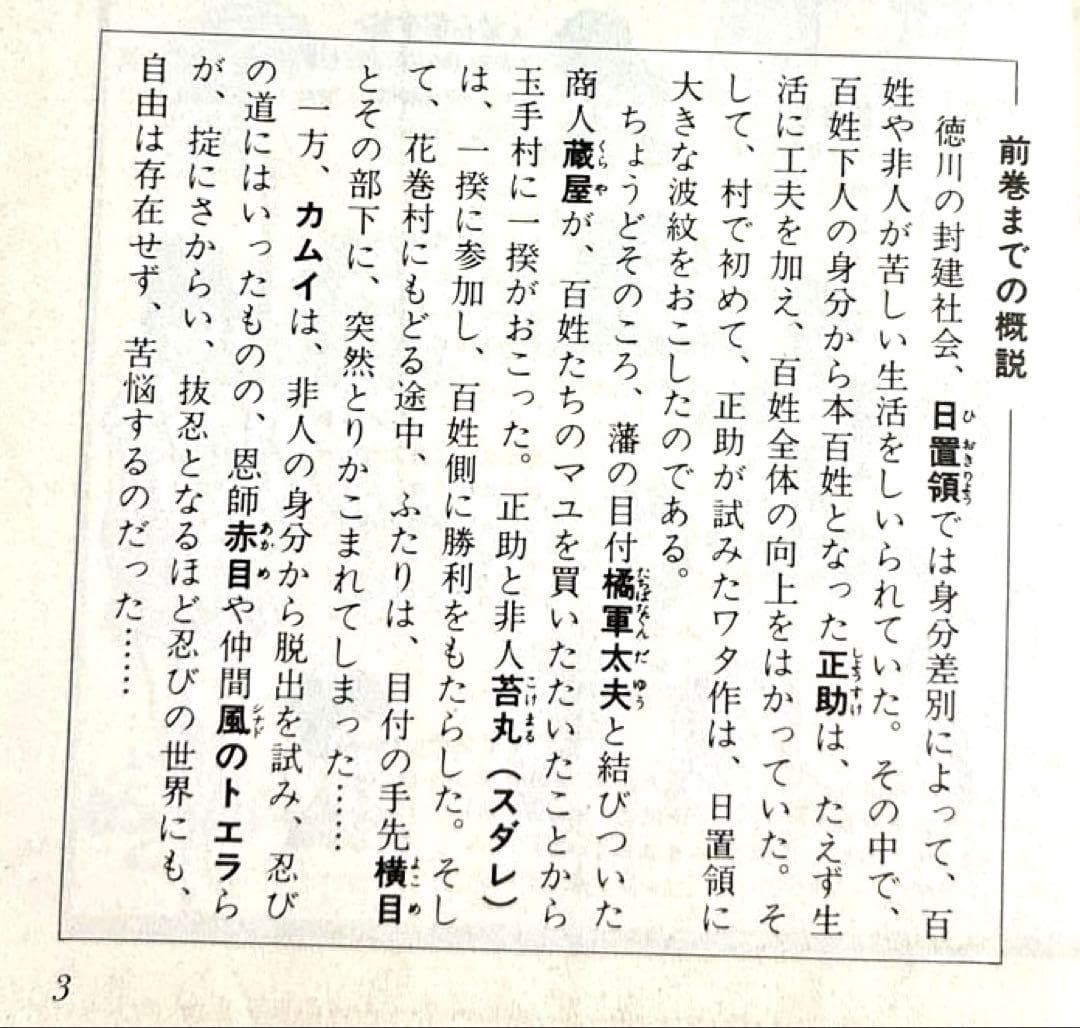 前巻までの概説
徳川の封建社会、日置領では身分差別によって、百
姓や非人が苦しい生活をしいられていた。その中で、
百姓下人の身分から本百姓となった正助は、たえず生
活に工夫を加え、百姓全体の向上をはかっていた。そ
して、村で初めて、正助が試みたワタ作は、日置領に
大きな波紋をおこしたのである。
ちょうどそのころ、藩の目付橘軍太夫と結びついた
商人蔵屋が、百姓たちのマユを買いたたいたことから
玉手村に一揆がおこった。正助と非人苔丸（スダレ）
は、一揆に参加し、百姓側に勝利をもたらした。そし
て、花巻村にもどる途中、ふたりは、目付の手先横目
とその部下に、突然とりかこまれてしまった……
一方、カムイは、非人の身分から脱出を試み、忍び
の道にはいったものの、恩師赤目や仲間風のトエラら
が、掟にさからい、抜忍となるほど忍びの世界にも、
自由は存在せず、苦悩するのだった……
3